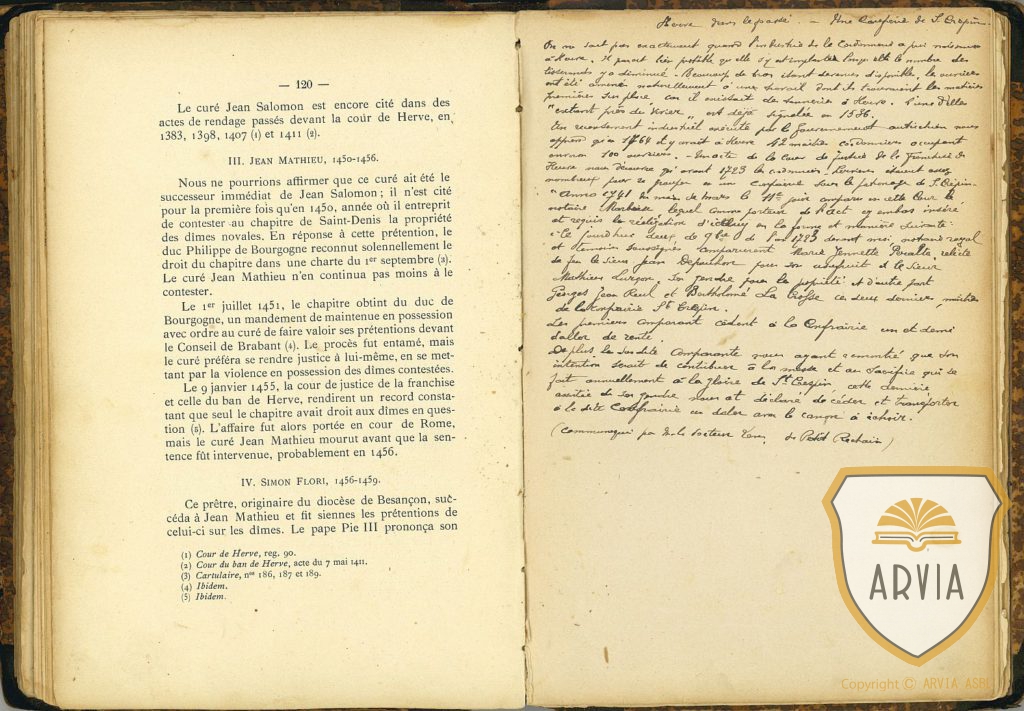 — 120 —
Le curé Jean Salomon est encore cité dans des
actes de rendage passés devant la cour de Herve, en
1383, 1398, 1407 (1) et 1411 (2).
III. JEAN MATHIEU, 1450-1456.
Nous ne pourrions affirmer que ce curé ait été le
successeur immédiat de Jean Salomon ; il n'est cité
pour la première fois qu'en 1450, année où il entreprit
de contester au chapitre de Saint-Denis la propriété
des dîmes novales. En réponse à cette prétention, le
duc Philippe de Bourgogne reconnut solennellement le
droit du chapitre dans une charte du 1er septembre (3).
Le curé Jean Mathieu n'en continua pas moins à le
contester.
Le 1er juillet 1451, le chapitre obtint du duc de
Bourgogne, un mandement de maintenue en possession
avec ordre au curé de faire valoir ses prétentions devant
le Conseil de Brabant (4). Le procès fut entamé, mais
le curé préféra se rendre justice à lui-même, en se met-
tant par la violence en possession des dîmes contestées.
Le 9 janvier 1455, la cour de justice de la franchise
et celle du ban de Herve, rendirent un record consta-
tant que seul le chapitre avait droit aux dîmes en ques-
tion (5). L'affaire fut alors portée en cour de Rome,
mais le curé Jean Mathieu mourut avant que la sen-
tence fût intervenue, probablement en 1456.
IV. SIMON FLORI, 1456-1459.
Ce prêtre, originaire du diocèse de Besançon, suc-
céda à Jean Mathieu et fit siennes les prétentions de
celui-ci sur les dîmes. Le pape Pie III prononça son
(1) Cour de Herve, reg. 90.
(2) Cour du ban de Herve, acte du 7 mai 1411.
(3) Cartulaire, nos 186, 187 et 189.
(4) Ibidem.
(5) Ibidem.
Herve dans le passé. — Une Confrérie de S. Crépin.
On ne sait pas exactement quand l'industrie de la Cordonnerie a pris naissance
à Herve. Il parait très possible qu'elle s'y est implantée lorsque le nombre des
tisserands y a diminué. Beaucoup de bras étant devenus disponibles, les ouvriers
ont été amenés naturellement à un travail dont ils trouvaient les matières
premières sur place car il existait des tanneries à Herve. L'une d'elles
"extant près du vivier" est déjà signalée en 1536.
Un recensement industriel exécuté par le Gouvernement autrichien nous
apprend qu'en 1764 il y avait à Herve 42 maitres cordonniers occupant
environ 100 ouvriers. Un acte de la Cour de justice de la Franchise de
Herve nous découvre qu'avant 1723 les cordonniers herviens étaient assez
nombreux pour se grouper en une Confrairie sous le patronage de S. Crépin.
"Anno 1741 du mois de mars le 11e jour comparu en cette Cour le
notaire lequel comme porteur de l'act cy embas inséré
et requis la réalisation d'icelluy en la forme et manière suivante :
Ce jourdhuy deux de 9bre de l'an 1723 devant moi notaire royal
et témoins soussignés comparurent Marie Jennette relicte
de feu le sieur Jean pour son usufruit et le sieur
Mathieu son gendre pour la propriété et d'autre part
Georges Jean Reul et Bartholomé La Crosse ces deux derniers maitres
de la Confrairie St Crépin.
Les premiers comparant cèdent à la Confrairie un et demi
daller de rente.
De plus la susdite Comparante nous ayant remontré que son
intention serait de contribuer à la messe et au sacrifice qui se
fait annuellement à la gloire de St Crespin, cette dernière
assistée de son gendre nous at déclaré de céder et transporter
à la dite Confrairie un daler avec le canon à échoir.
(Communiqué par de Petit Rechain)
ARVIA
Copyright © ARVIA ASBL